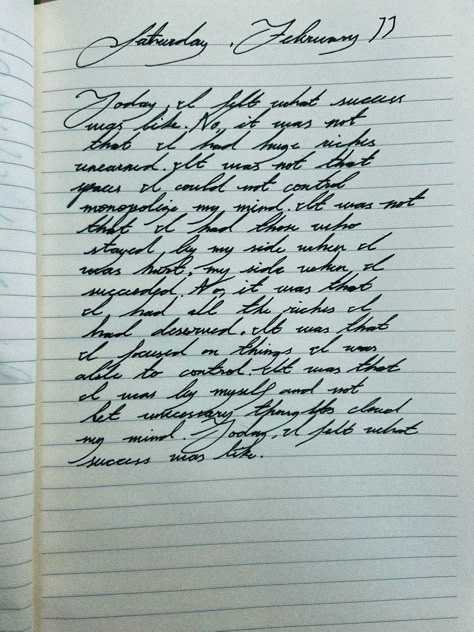 Saturday, February 11
Today, I felt what success
was like. No, it was not
that I had huge riches
unearned. It was not that
I could not control
monopolize my mind. It was not
that I had those who
stayed by my side when I
was hurt, my side when I
succeeded. No, it was that
I had all the riches I
had deserved. It was that
I focused on things I was
able to control. It was that
I was by myself and not
let unnecesary thoughts cloud
my mind. Today, I felt what
success was like.